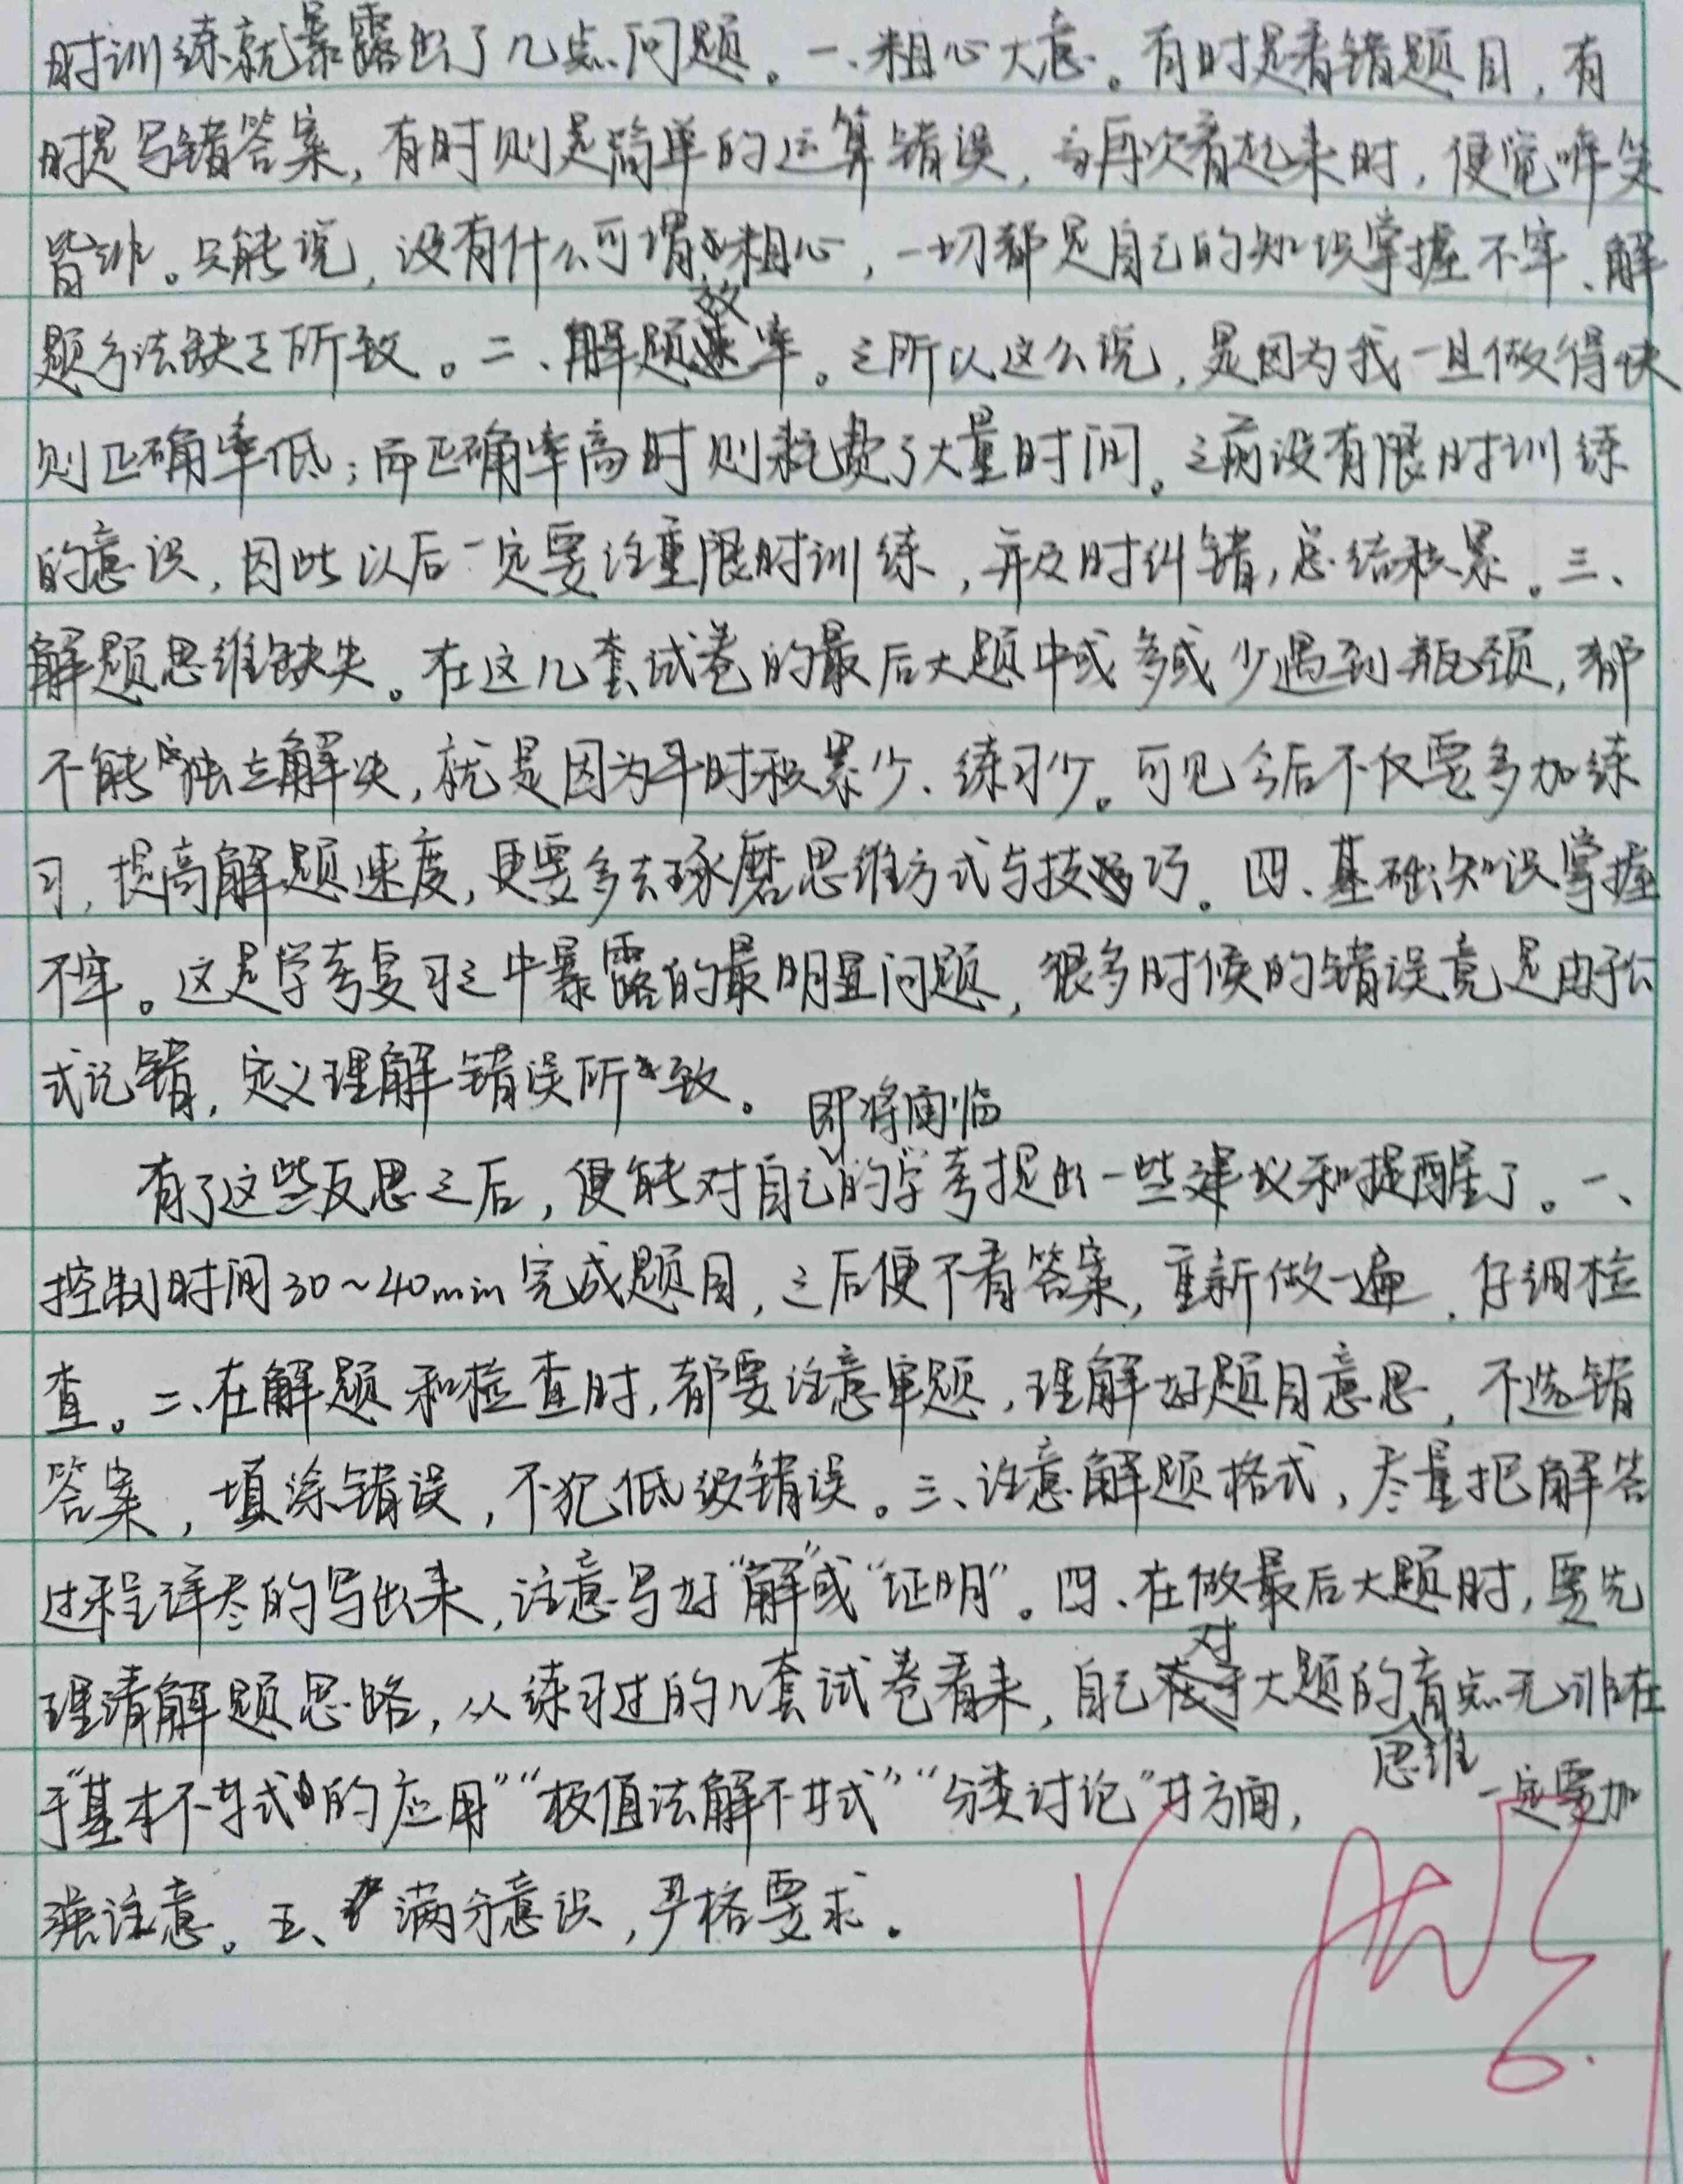 时训练就暴露出了几点问题。一、粗心大意。有时是看错题目，有
时是写错答案，有时则是简单的运算错误，当再次看起来时，便觉啼笑
皆非。只能说，没有什么可谓粗心，一切都是自己的知识掌握不牢、解
题方法缺乏所致。二、解题效率。之所以这么说，是因为我一旦做得快
则正确率低；而正确率高时则耗费了大量时间。之前没有限时训练
的意识，因此以后一定要注重限时训练，并及时纠错，总结积累。三、
解题思维缺失。在这几套试卷的最后大题中或多或少遇到瓶颈，都
不能独立解决，就是因为平时积累少、练习少。可见今后不仅要多加练
习，提高解题速度，更要多去琢磨思维方式与技巧。四、基础知识掌握
不牢。这是学考复习之中暴露的最明显问题，很多时候的错误竟是由于公
式记错，定义理解错误所致。
有了这些反思之后，便能对自己即将面临的学考提出一些建议和提醒了。一、
控制时间30~40min完成题目，之后便不看答案，重新做一遍，仔细检
查。二、在解题和检查时，都要注意审题，理解好题目意思，不选错
答案，填涂错误，不犯低级错误。三、注意解题格式，尽量把解答
过程详尽的写出来，注意写好“解”或“证明”。四、在做最后大题时，要先
理清解题思路，从练习过的几套试卷看来，自己对大题的思维盲点无非在
于“基本不等式的应用”“极值法解不等式”“分类讨论”等方面，一定要加
强注意。五、满分意识，严格要求。